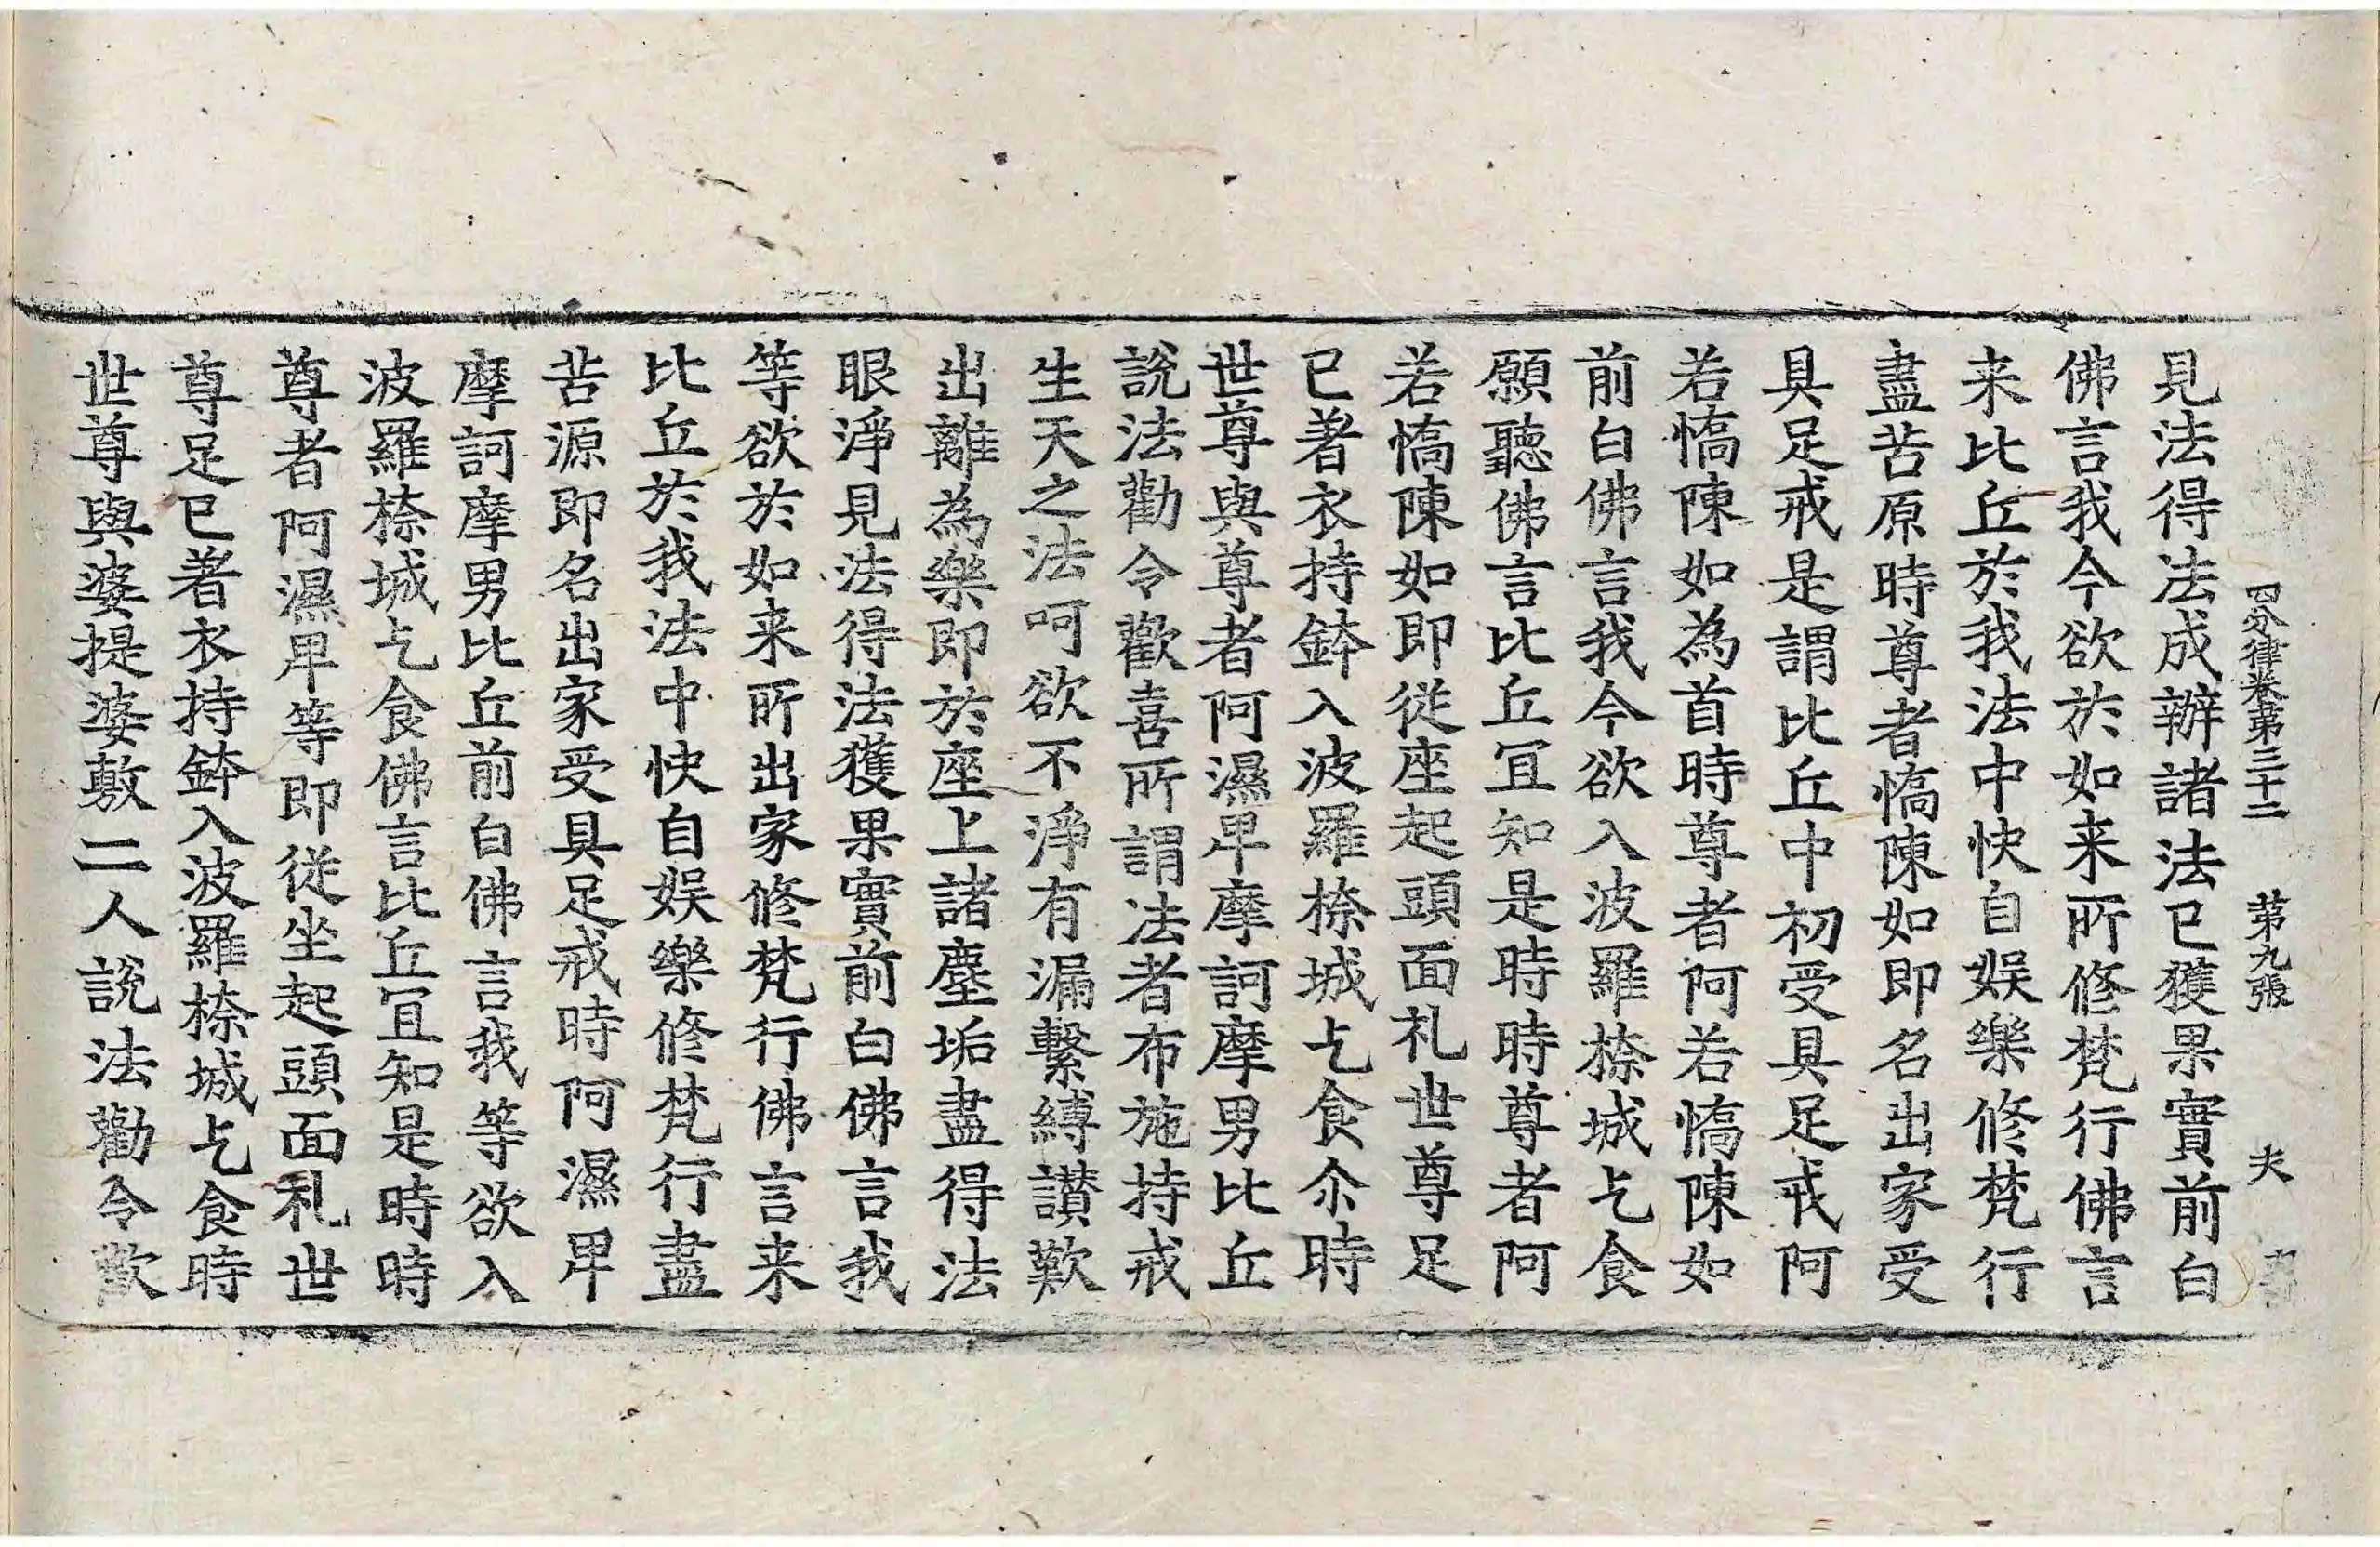 四分律卷第三十二 第九張 夫
見法得法成辦諸法已獲果實前白
佛言我今欲於如来所修梵行佛言
来比丘於我法中快自娱樂修梵行
盡苦原時尊者憍陳如即名出家受
具足戒是謂比丘中初受具足戒阿
若憍陳如為首時尊者阿若憍陳如
前白佛言我今欲入波羅㮈城乞食
願聽佛言比丘冝知是時時尊者阿
若憍陳如即從座起頭面礼世尊足
已著衣持鉢入波羅㮈城乞食尒時
世尊與尊者阿濕卑摩訶摩男比丘
說法勸令歡喜所謂法者布施持戒
生天之法呵欲不淨有漏繫縛讃歎
出離為樂即於座上諸塵垢盡得法
眼淨見法得法獲果實前白佛言我
等欲於如来所出家修梵行佛言来
比丘於我法中快自娱樂修梵行盡
苦源即名出家受具足戒時阿濕卑
摩訶摩男比丘前白佛言我等欲入
波羅㮈城乞食佛言比丘冝知是時時
尊者阿濕卑等即從坐起頭面礼世
尊足已著衣持鉢入波羅㮈城乞食時
世尊與婆提婆敷二人說法勸令歡